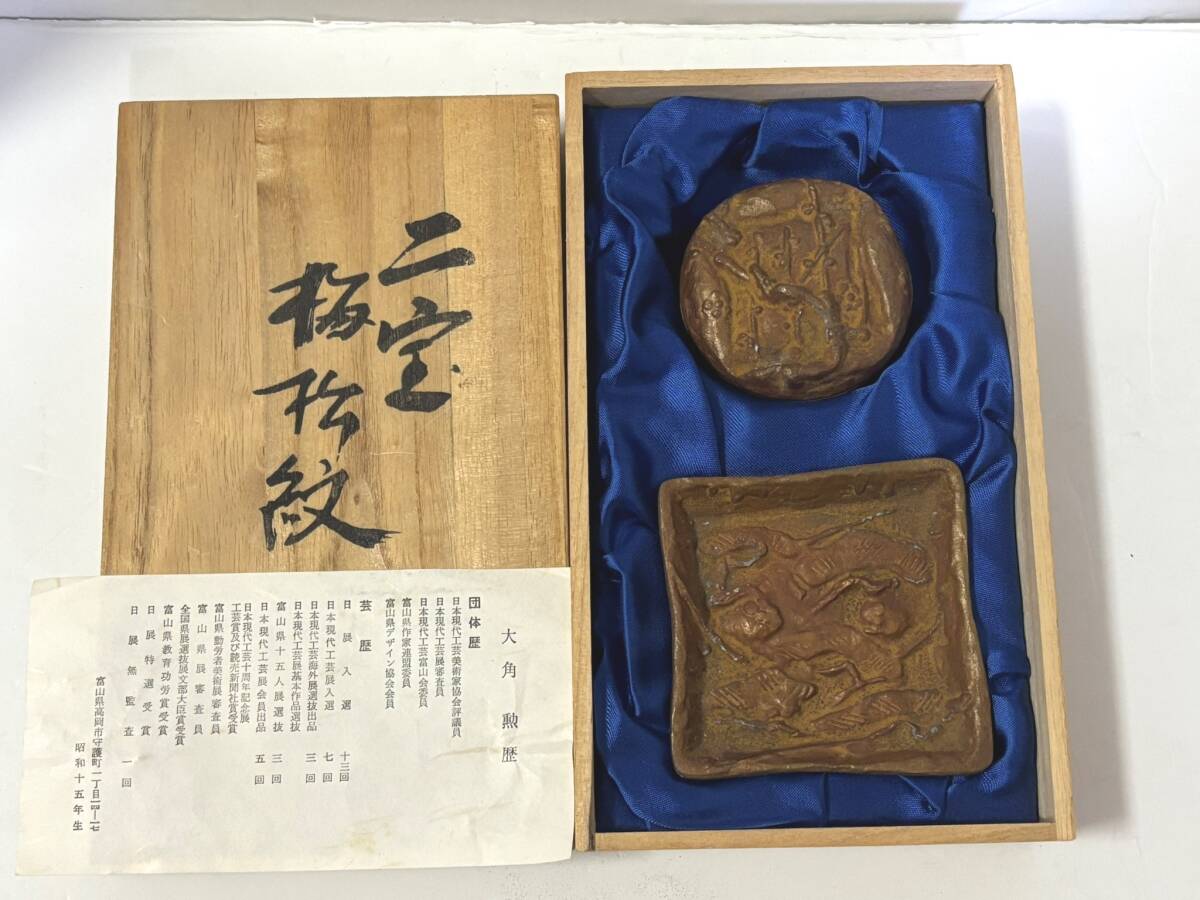 二宝
梅松紋
大角勲歴
団体歴
日本現代工芸美術家協会評議員
日本現代工芸展審査員
日本現代工芸富山会委員
富山県作家連盟委員
富山県デザイン協会会員
芸歴
日展入選 十三回
日本現代工芸展入選 七回
日本現代工芸海外展選抜出品 三回
日本現代工芸展基本作品選抜
富山県十五人展選抜 三回
日本現代工芸展会員出品 五回
日本現代工芸十周年記念展
工芸賞及び読売新聞社賞受賞
富山県勤労者美術展審査員
富山県展審査員
全国県展選抜展文部大臣賞受賞
富山県教育功労賞受賞
日展特選受賞
日展無監査 一回
富山県高岡市守護町一丁目一四―一七
昭和十五年生